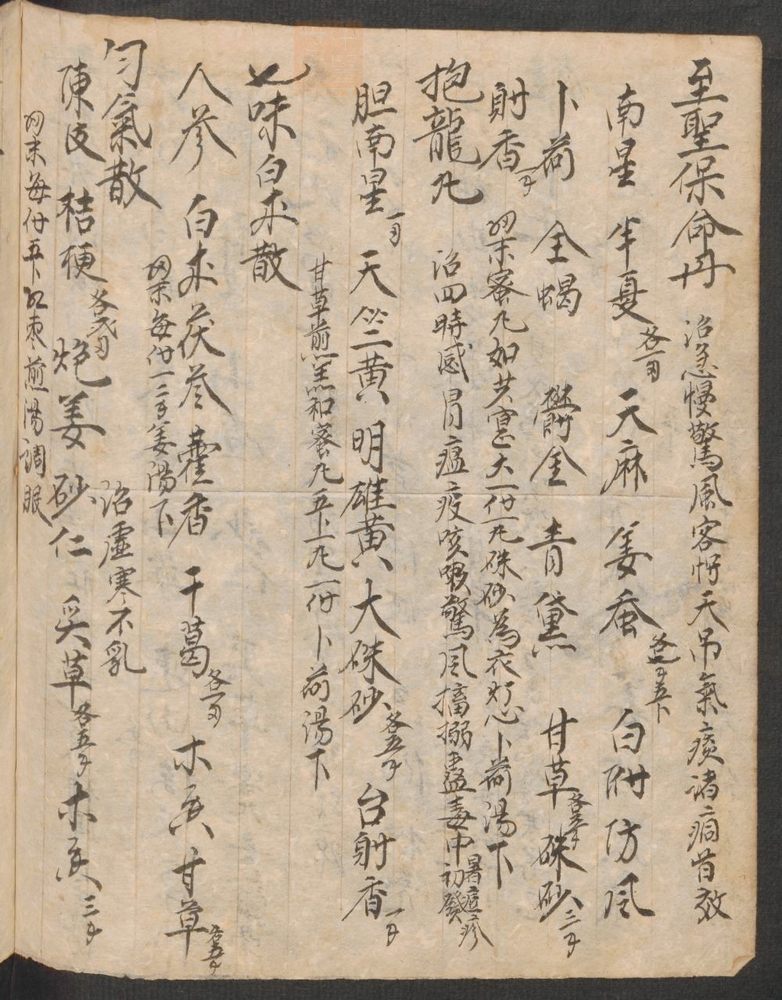 至聖保命丹 治急慢驚風客忤天吊氣痰諸痫皆效
南星 半夏各一両 天麻 姜蚕各二毛五卜 白附 防风
卜荷 全蝎 欝金 青黛 甘草各五毛 硃砂三毛
射香一毛 為末蜜丸如芡寔大一付一丸硃砂為衣灯心卜荷湯下
抱龍丸 治四時感冒瘟疫咳嗽驚风搐搦蠱毒中暑痘疹初發
胆南星一両 天竺黄 明雄黄 大硃砂各五毛 台射香一毛
甘草煎羔和蜜丸五卜一丸一付卜荷湯下
七味白朮散
人參 白朮 茯苓 藿香 干葛各一両 木香 甘草各五毛
為末每付一二毛姜湯下
匀氣散 治虛寒不乱
陳皮 桔梗各弍両 炮姜 砂仁 炙草各五毛 木香三毛
為末每付五卜 红枣煎湯調服